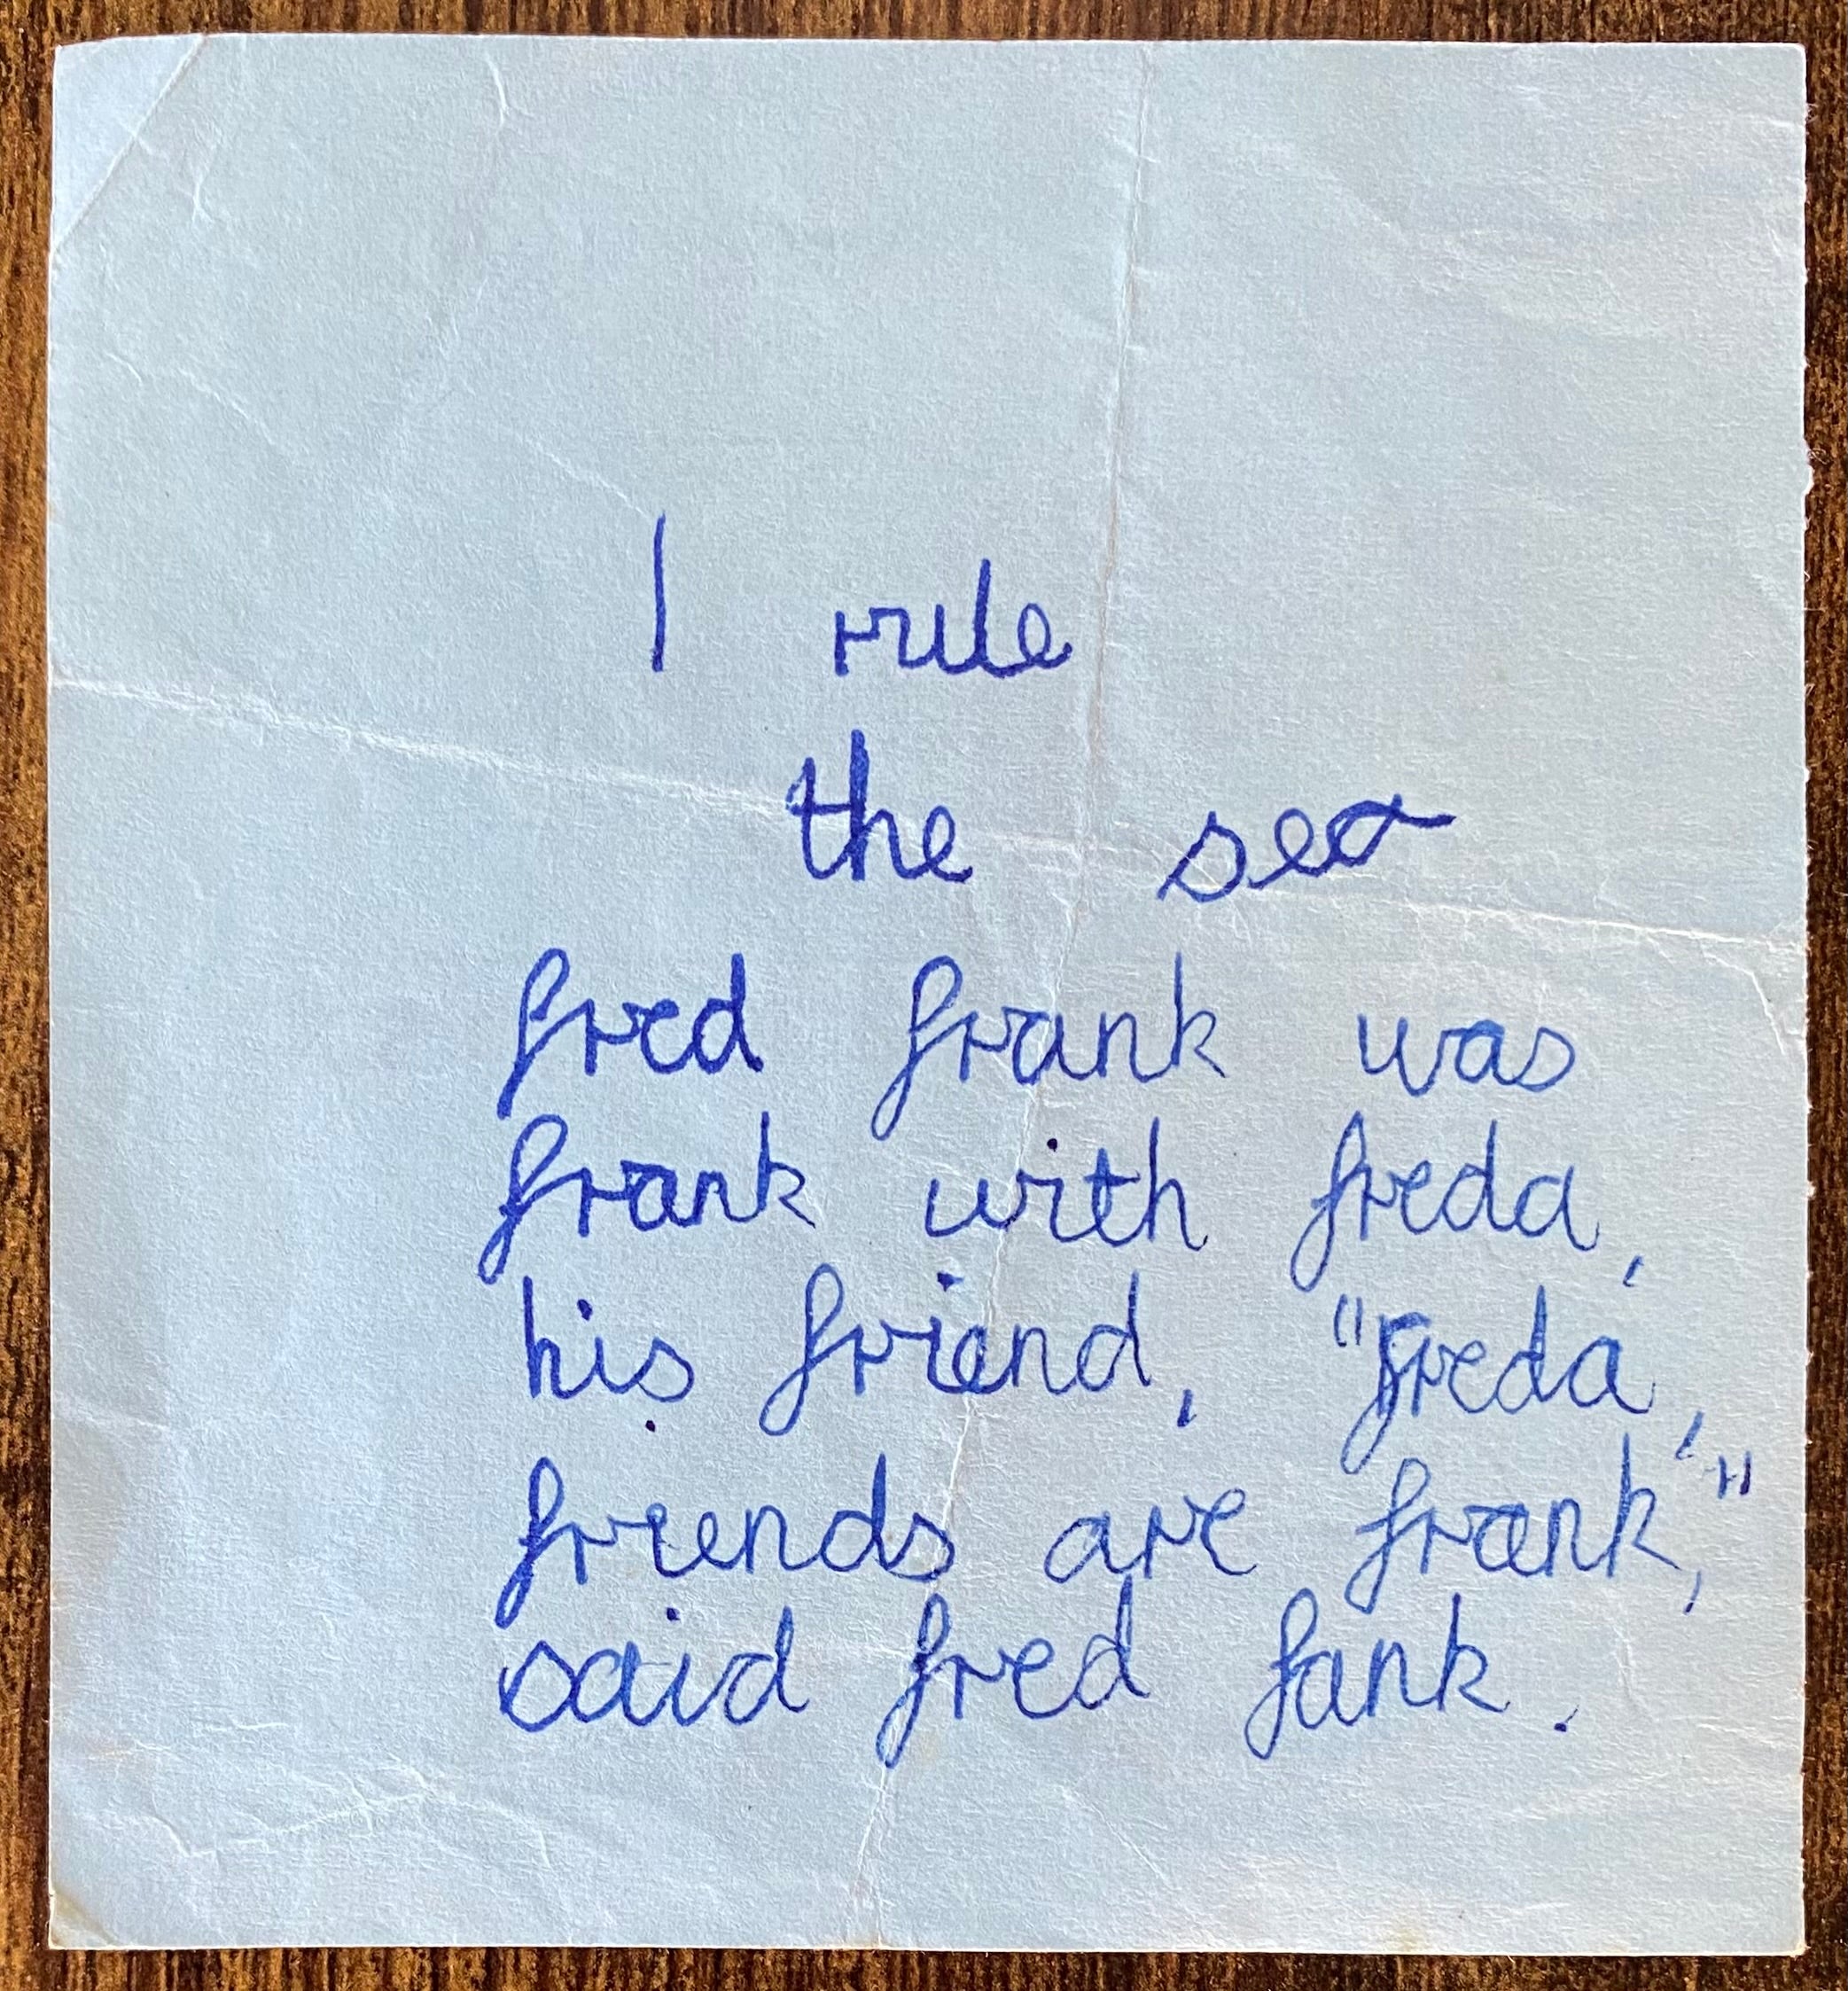 I rule
the sea
fred frank was
frank with freda,
his friend, "Freda,
friends are frank,"
said fred fank.